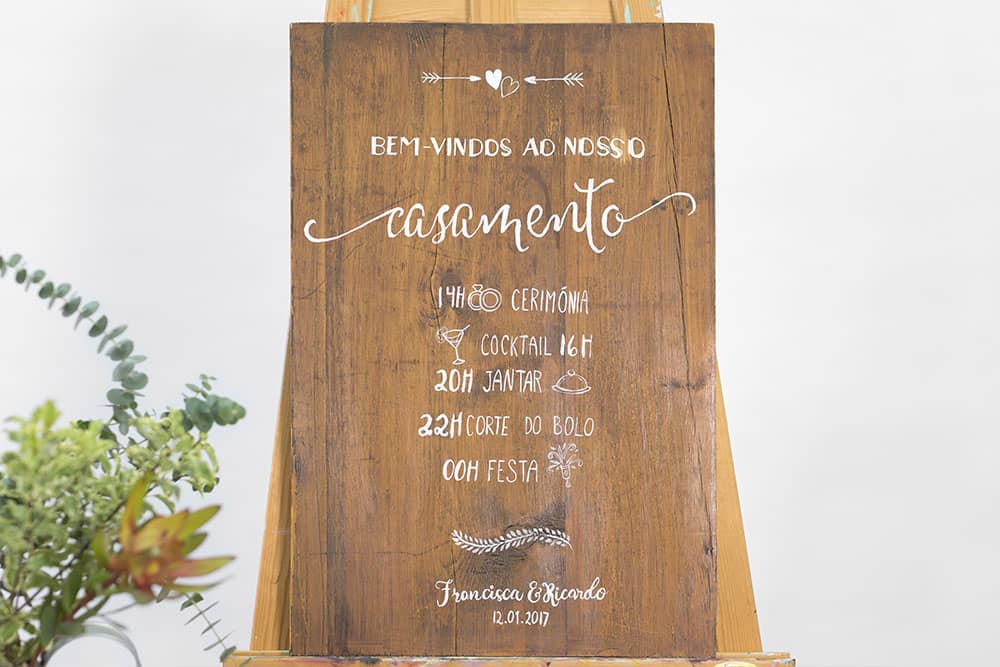 BEM-VINDOS AO NOSSO
casamento
14H CERIMÓNIA
COCKTAIL 16H
20H JANTAR
22H CORTE DO BOLO
00H FESTA
Francisca & Ricardo
12.01.2017